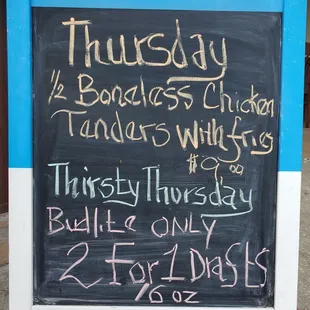 Thursday
1/2 Boneless Chicken
Tenders with fries
$9.00
Thirsty Thursday
Budlite ONLY
2 For 1 Drafts
16 oz